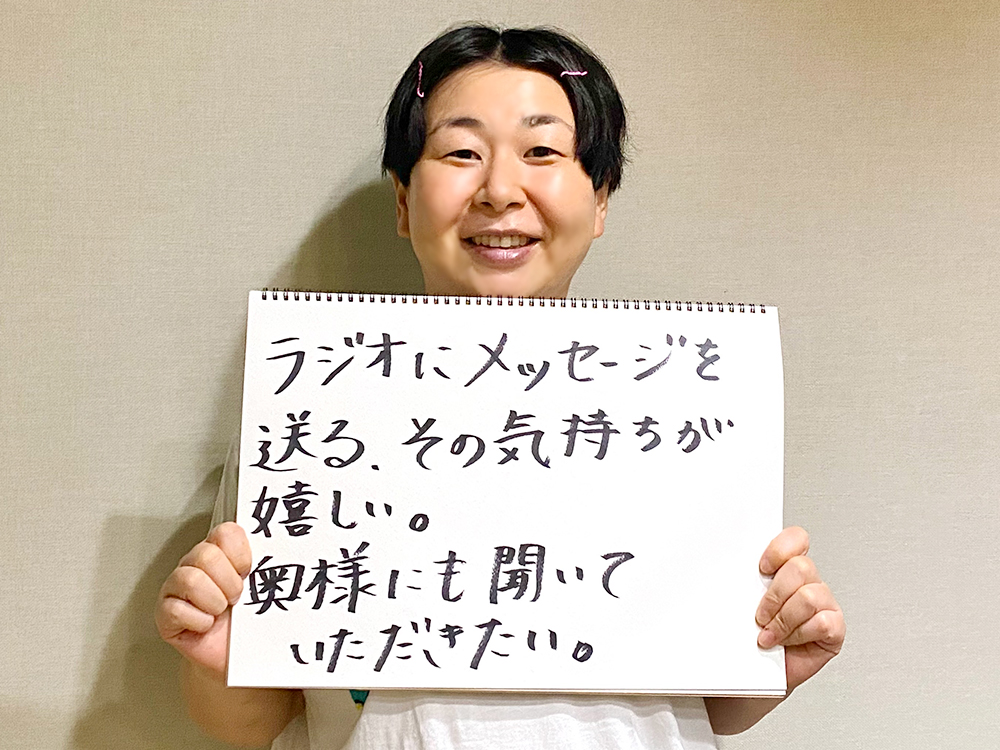 ラジオにメッセージを
送る、その気持ちが
嬉しい。
奥様にも聞いて
いただきたい。